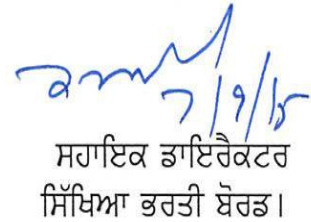 7/9/15
ਸਹਾਇਕ ਡਾਇਰੈਕਟਰ
ਸਿੱਖਿਆ ਭਰਤੀ ਬੋਰਡ।